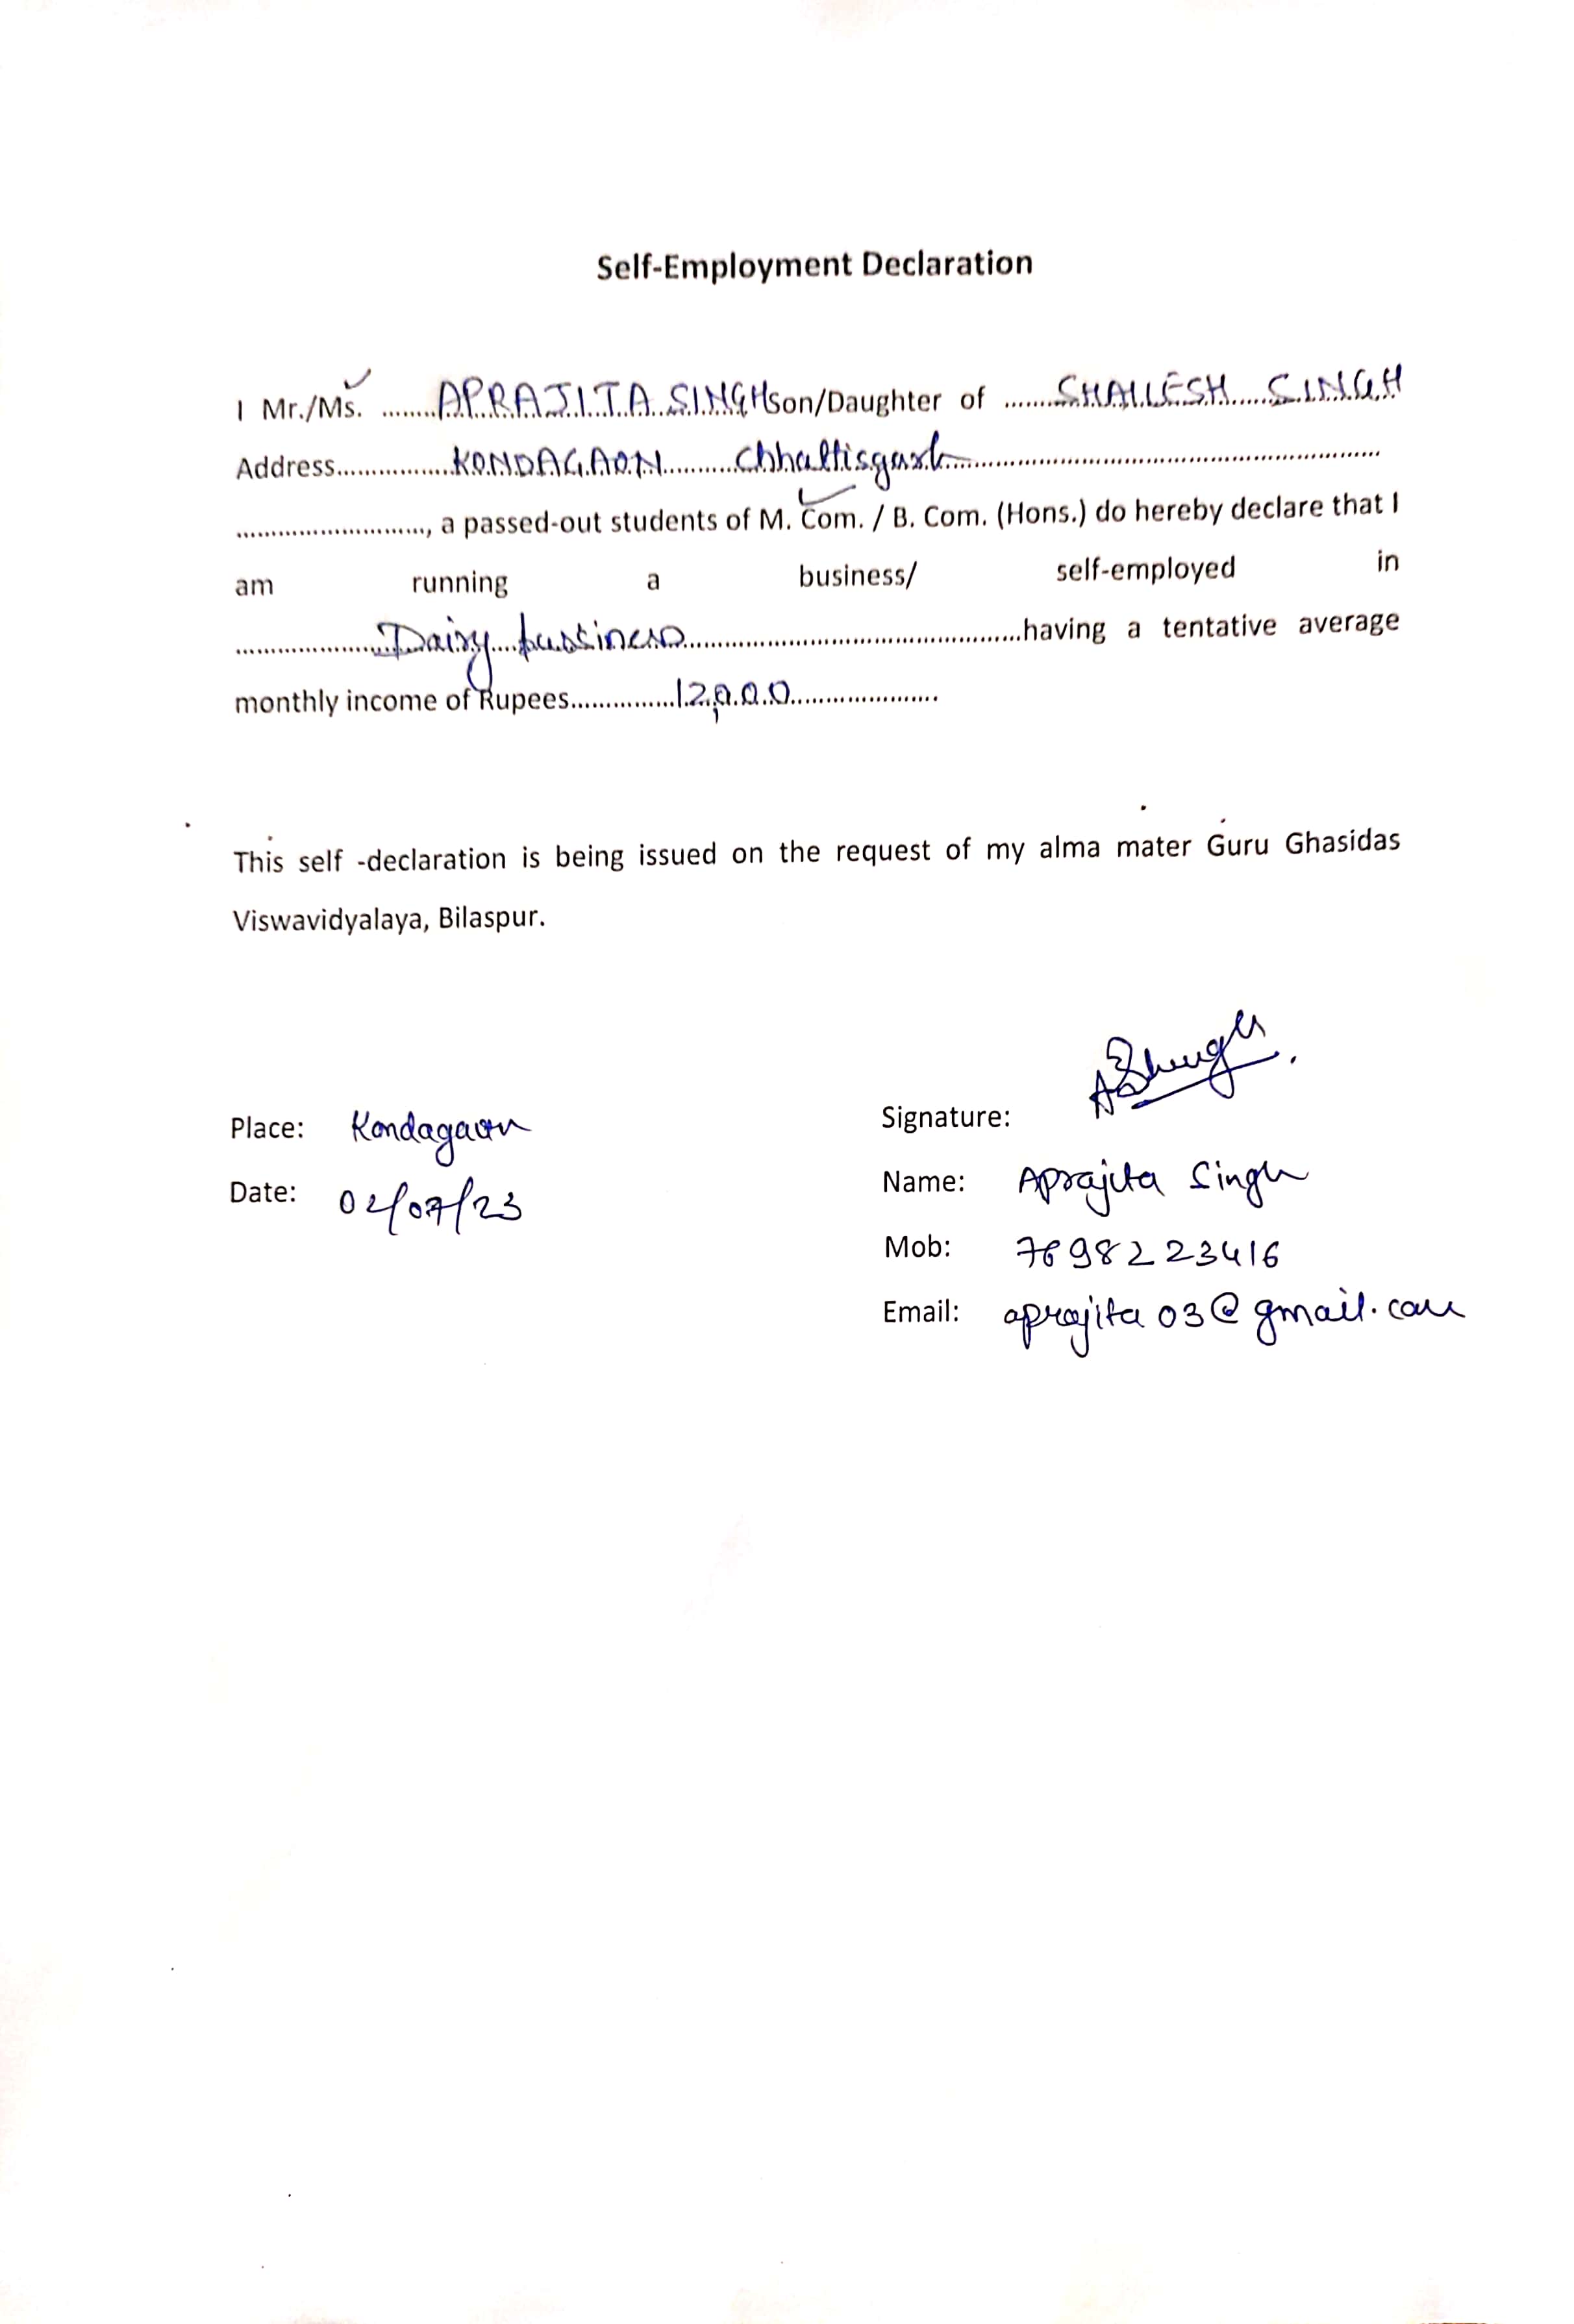 Self-Employment Declaration
I Mr./Ms. ........APRAJITA SINGH Son/Daughter of ........SHAILESH SINGH
Address.................KONDAGAON..........Chhattisgarh................................................................
............................, a passed-out students of M. Com. / B. Com. (Hons.) do hereby declare that I
am running a business/ self-employed in
.....................Dairy....bussiness.................................................having a tentative average
monthly income of Rupees...............12,000.....................
This self -declaration is being issued on the request of my alma mater Guru Ghasidas
Viswavidyalaya, Bilaspur.
Signature:
Place: Kondagaon
Name: Aprajita Singh
Date: 02/07/23
Mob: 7698223416
Email: aprajita03@gmail.com